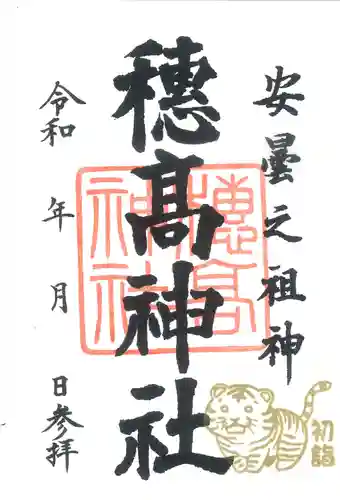 安曇之祖神
穗髙神社
令和 年 月 日参拝
穗高神社
初詣